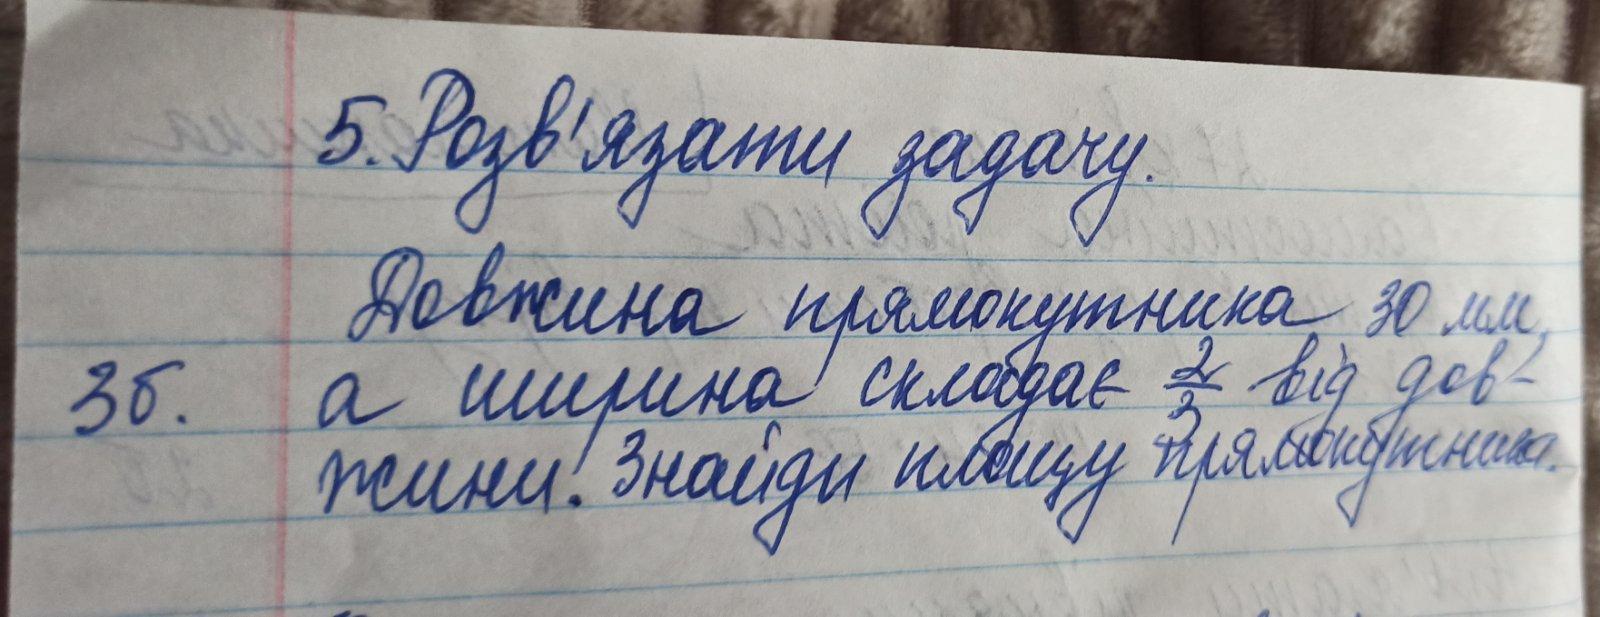 5. Розв'язати задачу.
Довжина прямокутника 30 мм,
3б. а ширина складає 2/3 від дов-
жини. Знайди площу прямокутника.